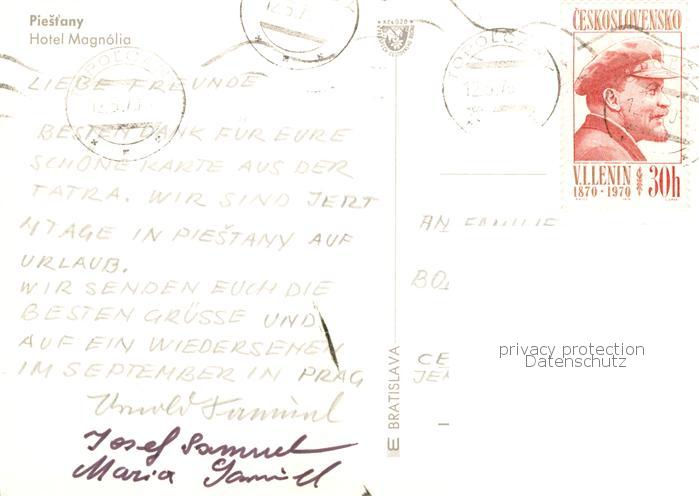 Piešťany
Hotel Magnólia
LIEBE FREUNDE
BESTEN DANK FÜR EURE
SCHÖNE KARTE AUS DER
TATRA. WIR SIND JETZT
4 TAGE IN PIEŠTANY AUF
URLAUB.
WIR SENDEN EUCH DIE
BESTEN GRÜSSE UND
AUF EIN WIEDERSEHEN
IM SEPTEMBER IN PRAG
Samuel
Josef Samuel
Maria Samuel
E BRATISLAVA
TOPOĽČA
ČESKOSLOVENSKO
V.I.LENIN
1870-1970 30h
AN FAMILIE
privacy protection
Datenschutz